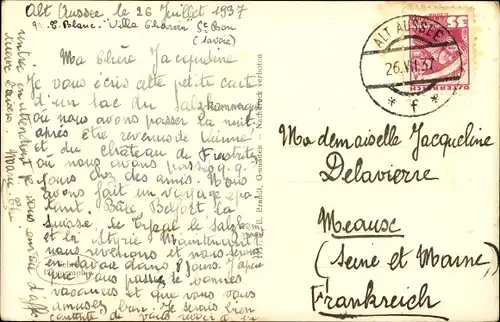 Alt Aussee le 26 Juillet 1937
"Villa
(Savoie)
Ma chère Jacqueline
Je vous écris cette petite carte
d'un lac du Salzkammergut
où nous avons passer la nuit
après être revenus de Vienne
et du château de
où nous avons passé
jours chez des amis. Nous
avons fait un voyage épa-
tant. Bâle, Belfort la
Suisse. Le Tyrol le Salzkam
et la Styrie Maintenant
nous revenons et nous serons
en dans 8 jours. J'
que vous passez de bonnes
vacances et que vous vous
amusez bien. Je serais bien
contente de vous revoir à la
Nachdruck verboten
Brandt, Gmunden
ALT AUSSEE
26.VII.37
* f *
35
ÖSTERREICH
Mademoiselle Jacqueline
Delavierre
Meaux
(Seine et Marne)
Frankreich